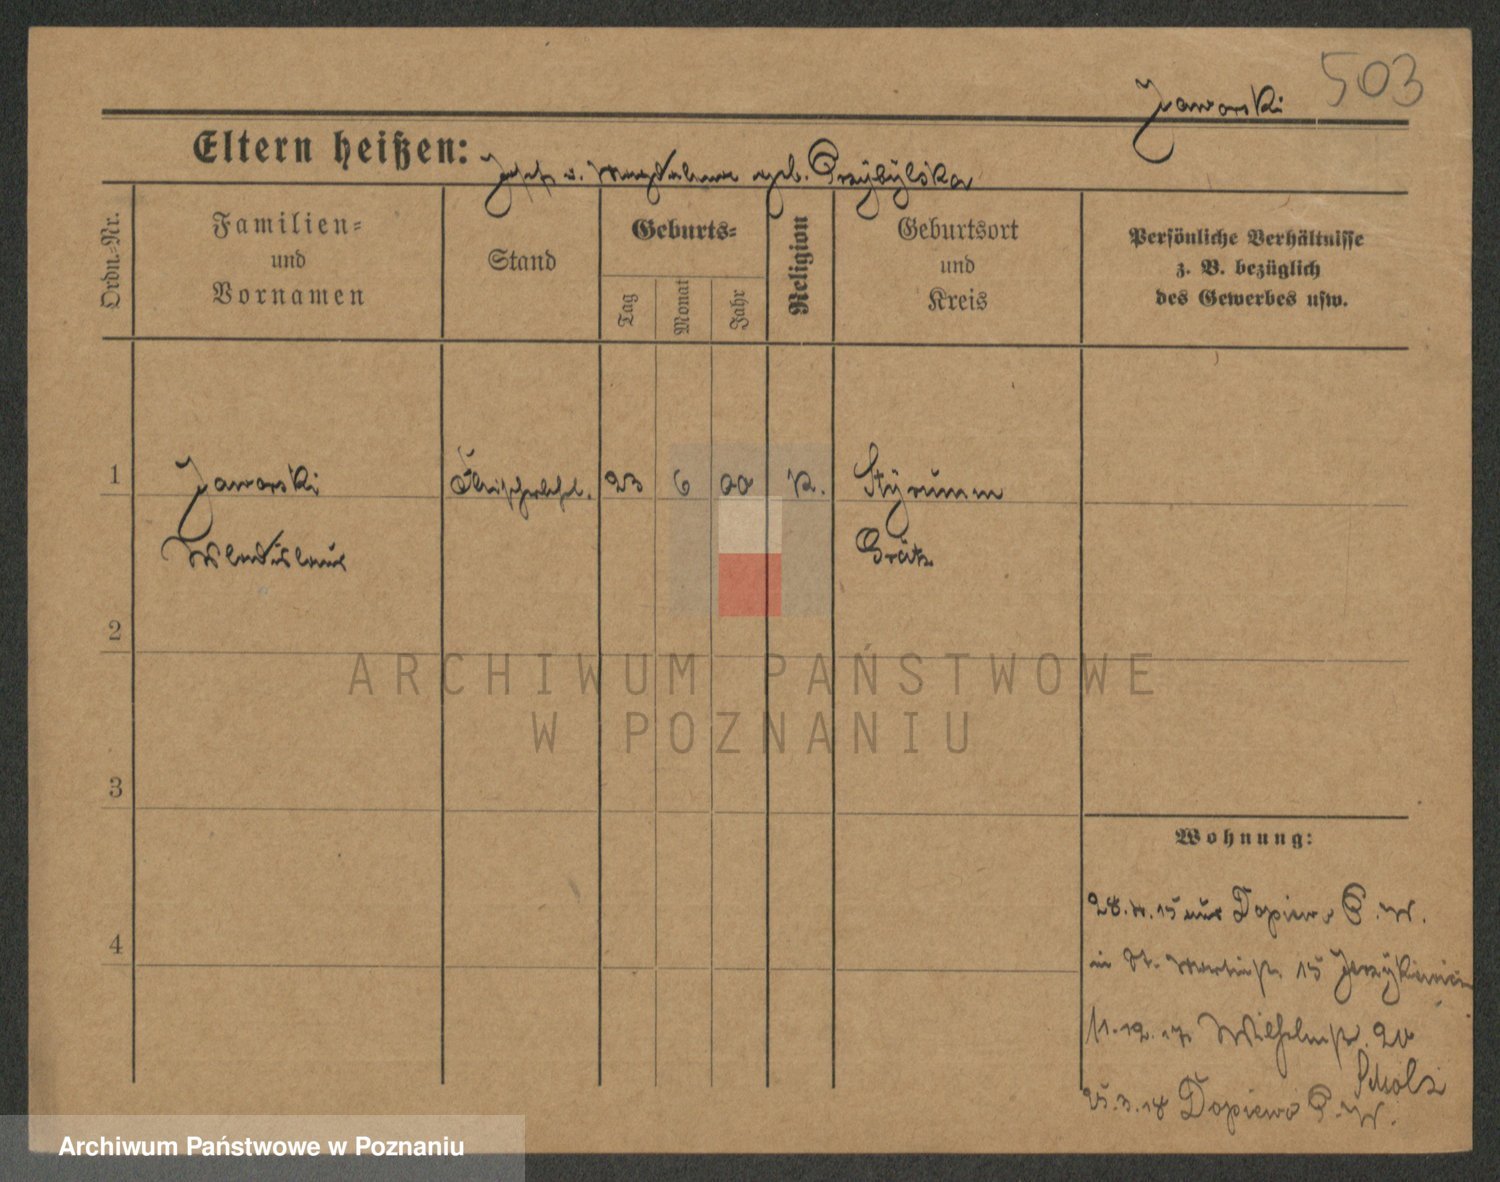 503
Jaworski
Eltern heißen: Josef u. Magdalena geb. Przybylska
Ordn.-Nr.
Familien-
und
Vornamen
Stand
Geburts-
Tag
Monat
Jahr
Religion
Geburtsort
und
Kreis
Persönliche Verhältnisse
z. B. bezüglich
des Gewerbes usw.
1
Jaworski
Fleischerlehrl.
23
6
00
K.
Styrumm
Wladislaus
Grätz
2
ARCHIWUM PAŃSTWOWE
W POZNANIU
3
Wohnung:
4
15 aus Dopiewo P. W.
in St. Martinstr. 15
11.12.17 Wilhelmstr. 20
25.3.18 Dopiewo P. W.
Archiwum Państwowe w Poznaniu